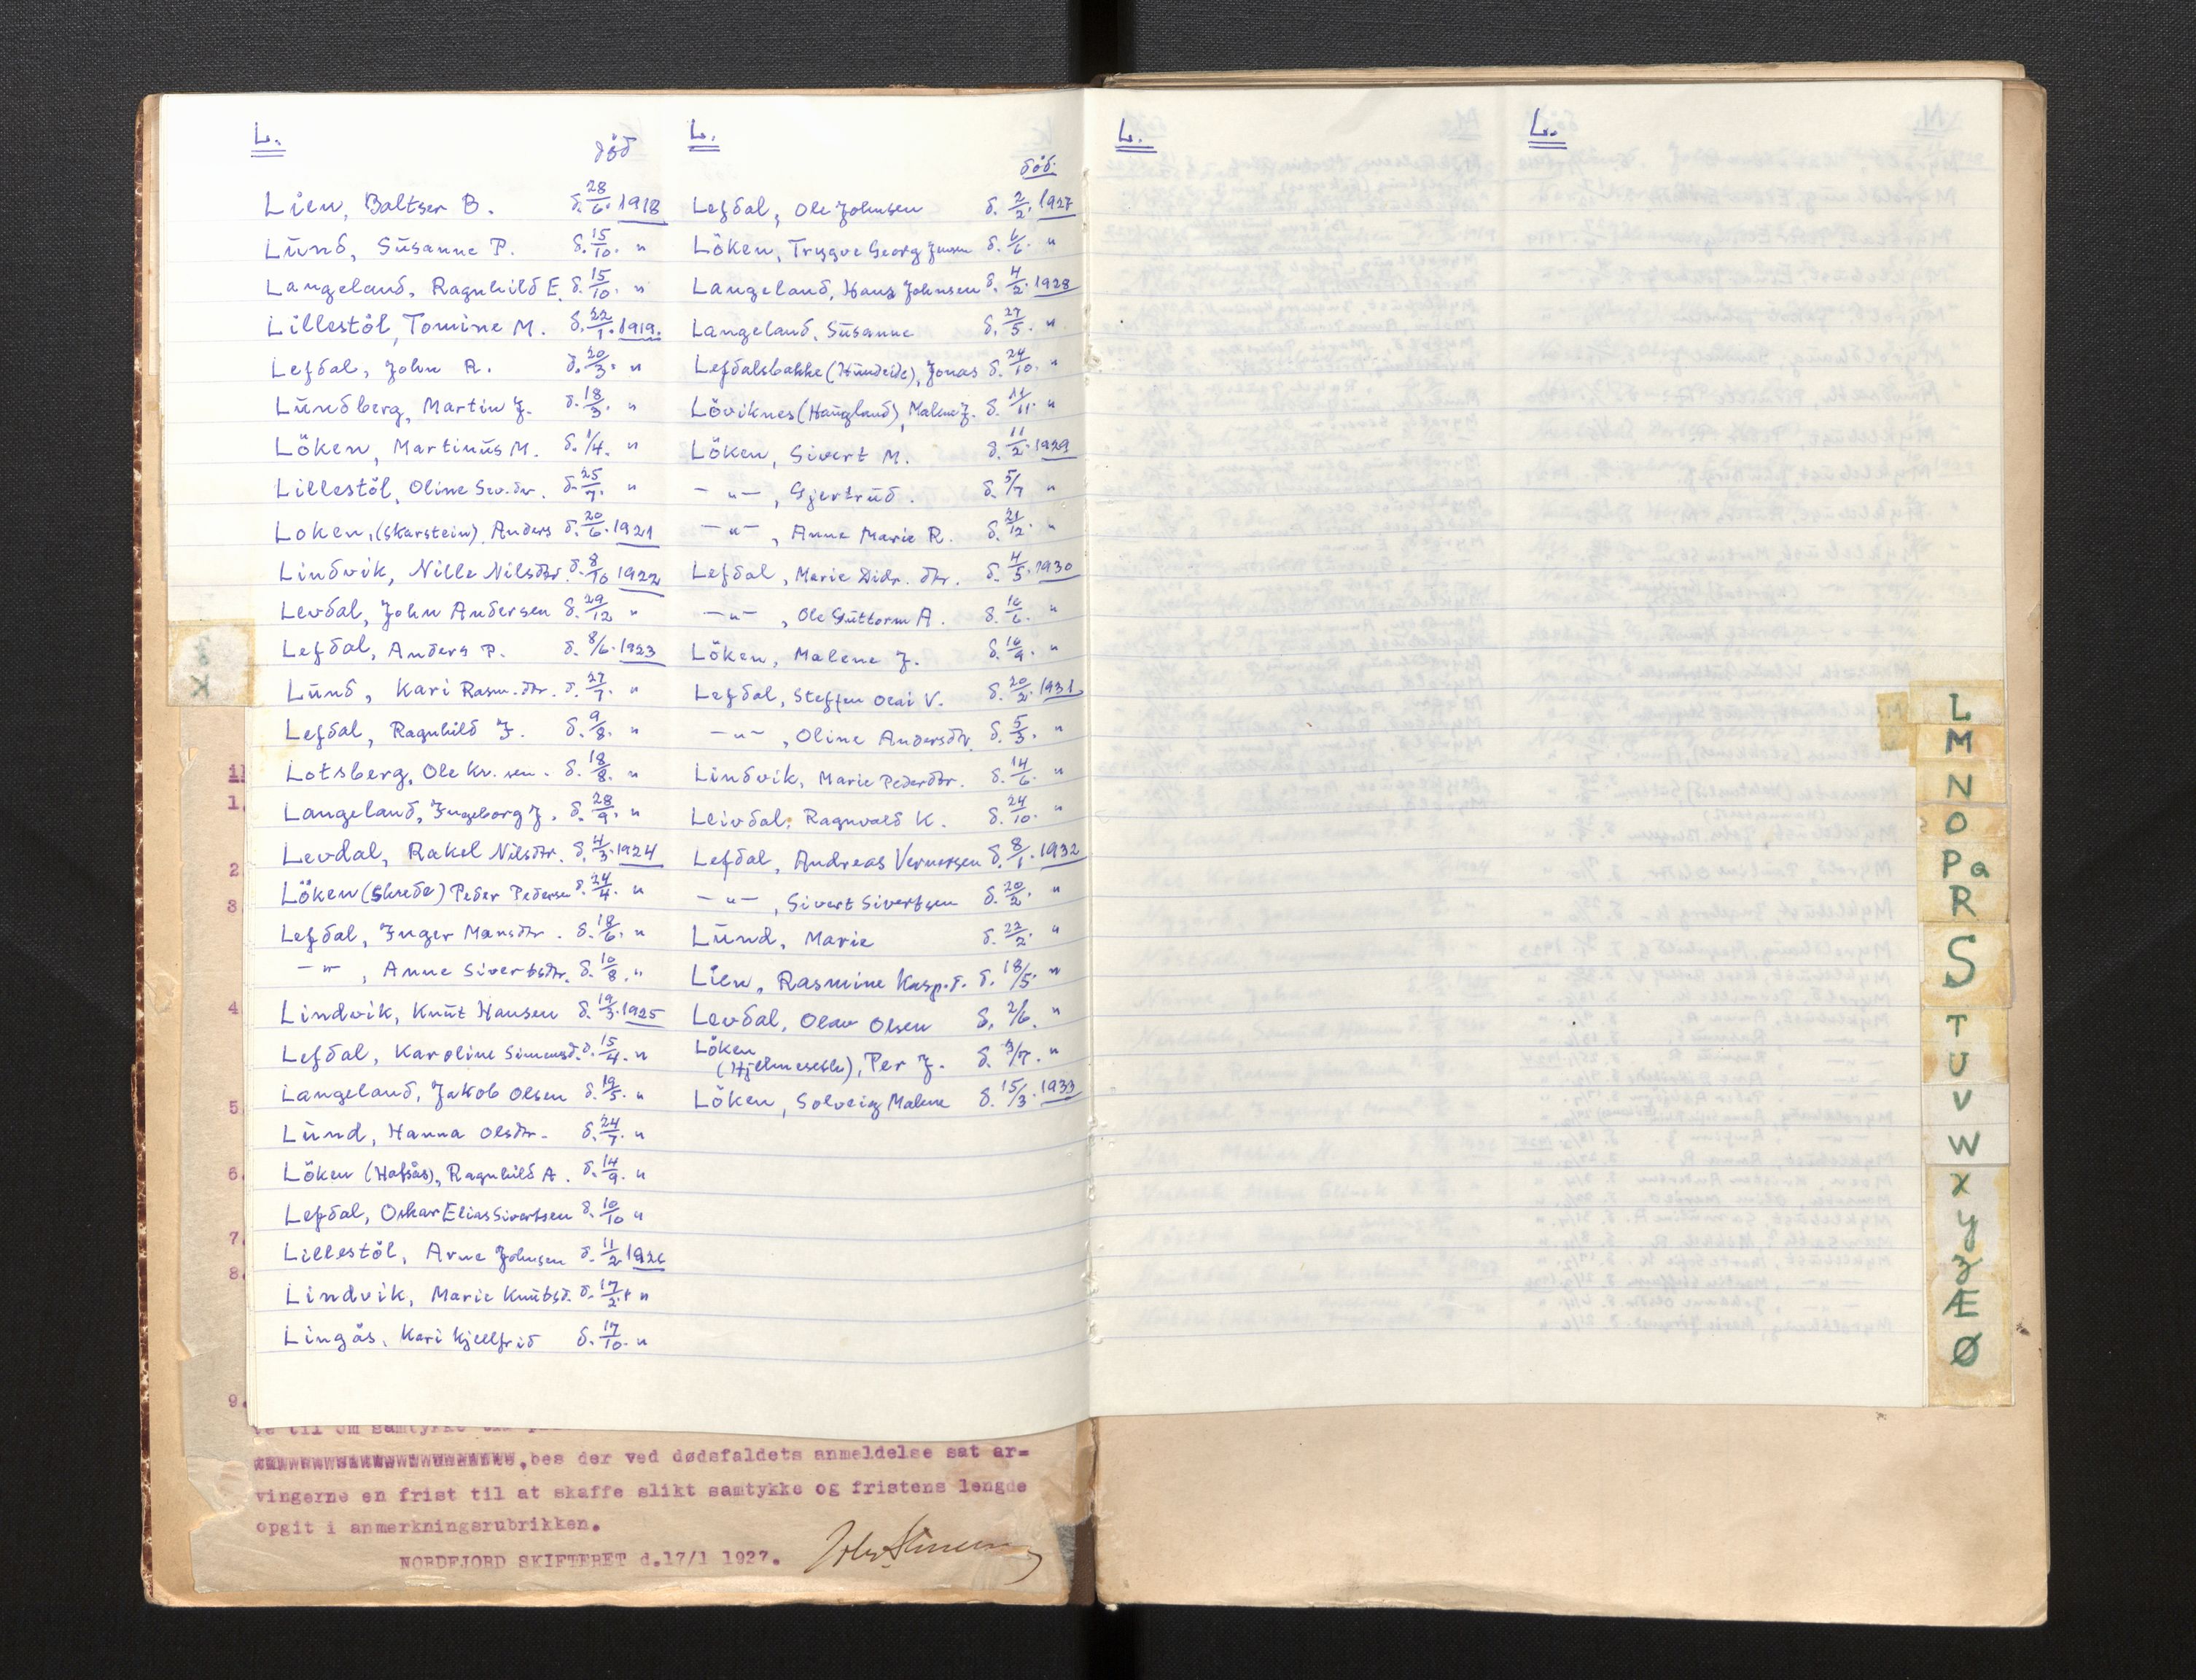 L.
död
Lien, Baltser B. d. 28/6. 1918
Lund, Susanne P. d. 15/10. "
Langeland, Ragnhild E. d. 15/10. "
Lillestöl, Tomine M. d. 22/1. 1919.
Lefdal, John A. d. 20/3. "
Lundberg, Martin J. d. 18/3. "
Löken, Martinus M. d. 1/4. "
Lillestöl, Oline Sev.dr. d. 25/7. "
Loken, (Skarstein), Anders d. 20/6. 1921
Lindvik, Nille Nilsdtr. d. 8/10 1922
Levdal, John Andersen d. 29/12 "
Lefdal, Anders P. d. 8/6. 1923
Lund, Kari Rasm.dtr. d. 27/7. "
Lefdal, Ragnhild J. d. 9/8. "
Lotsberg, Ole Kr. sen. d. 18/8. "
Langeland, Ingeborg J. d. 28/9. "
Levdal, Rakel Nilsdtr. d. 4/3. 1924
Löken (Skrede) Peder Pedersen d. 24/4. "
Lefdal, Inger Mansdtr. d. 18/6. "
—"— , Anne Sivertsdtr. d. 10/8. "
Lindvik, Knut Hansen d. 19/3. 1925
Lefdal, Karoline Simensd. d. 15/4. "
Langeland, Jakob Olsen d. 19/5. "
Lund, Hanna Olsdtr. d. 24/7. "
Löken (Hafsås), Ragnhild A. d. 14/9. "
Lefdal, Oskar Elias Sivertsen d. 10/10 "
Lillestöl, Arne Johnsen d. 11/2 1926
Lindvik, Marie Knutsd. d. 17/2. "
Lingås, Kari Kjellfrid d. 17/10. "
L.
död.
Lefdal, Ole Johnsen d. 2/2. 1927
Löken, Trygve Georg Jensen d. 6/6. "
Langeland, Hans Johnsen d. 4/2. 1928
Langeland, Susanne d. 27/5. "
Lefdalsbakke (Hundeide), Jonas d. 24/10. "
Löviknes (Haugland), Malene J. d. 11/11. "
Löken, Sivert M. d. 11/2. 1929
—"— , Gjertrud. d. 5/7 "
—"— , Anne Marie R. d. 21/12. "
Lefdal, Marie Didr. dtr. d. 4/5. 1930
—"— , Ole Guttorm A. d. 16/6. "
Löken, Malene J. d. 16/9. "
Lefdal, Steffen Olai V. d. 20/2. 1931
—"— , Oline Andersdtr. d. 5/3. "
Lindvik, Marie Pederdtr. d. 14/6. "
Leivdal, Ragnvald K. d. 24/10. "
Lefdal, Andreas Vernersen d. 8/1. 1932
—"— , Sivert Sivertsen d. 20/2. "
Lund, Marie d. 22/2. "
Lien, Rasmine Kasp.d. d. 18/5. "
Levdal, Olav Olsen d. 2/6. "
Löken
(Hjelmeseth), Per J. d. 3/7. "
Löken, Solveig Malene d. 15/3. 1933
L.
L.
L
M
N
O
P a
R
S
T
U
V
W
X
Y
Z
Æ
Ø
1.
2
3.
4
5.
6.
7.
8.
9.
bes der ved dødsfaldets anmeldelse sat ar=
vingerne en frist til at skaffe slikt samtykke og fristens lengde
opgit i anmerkningsrubrikken.
NORDFJORD SKIFTERET d.17/1 1927.